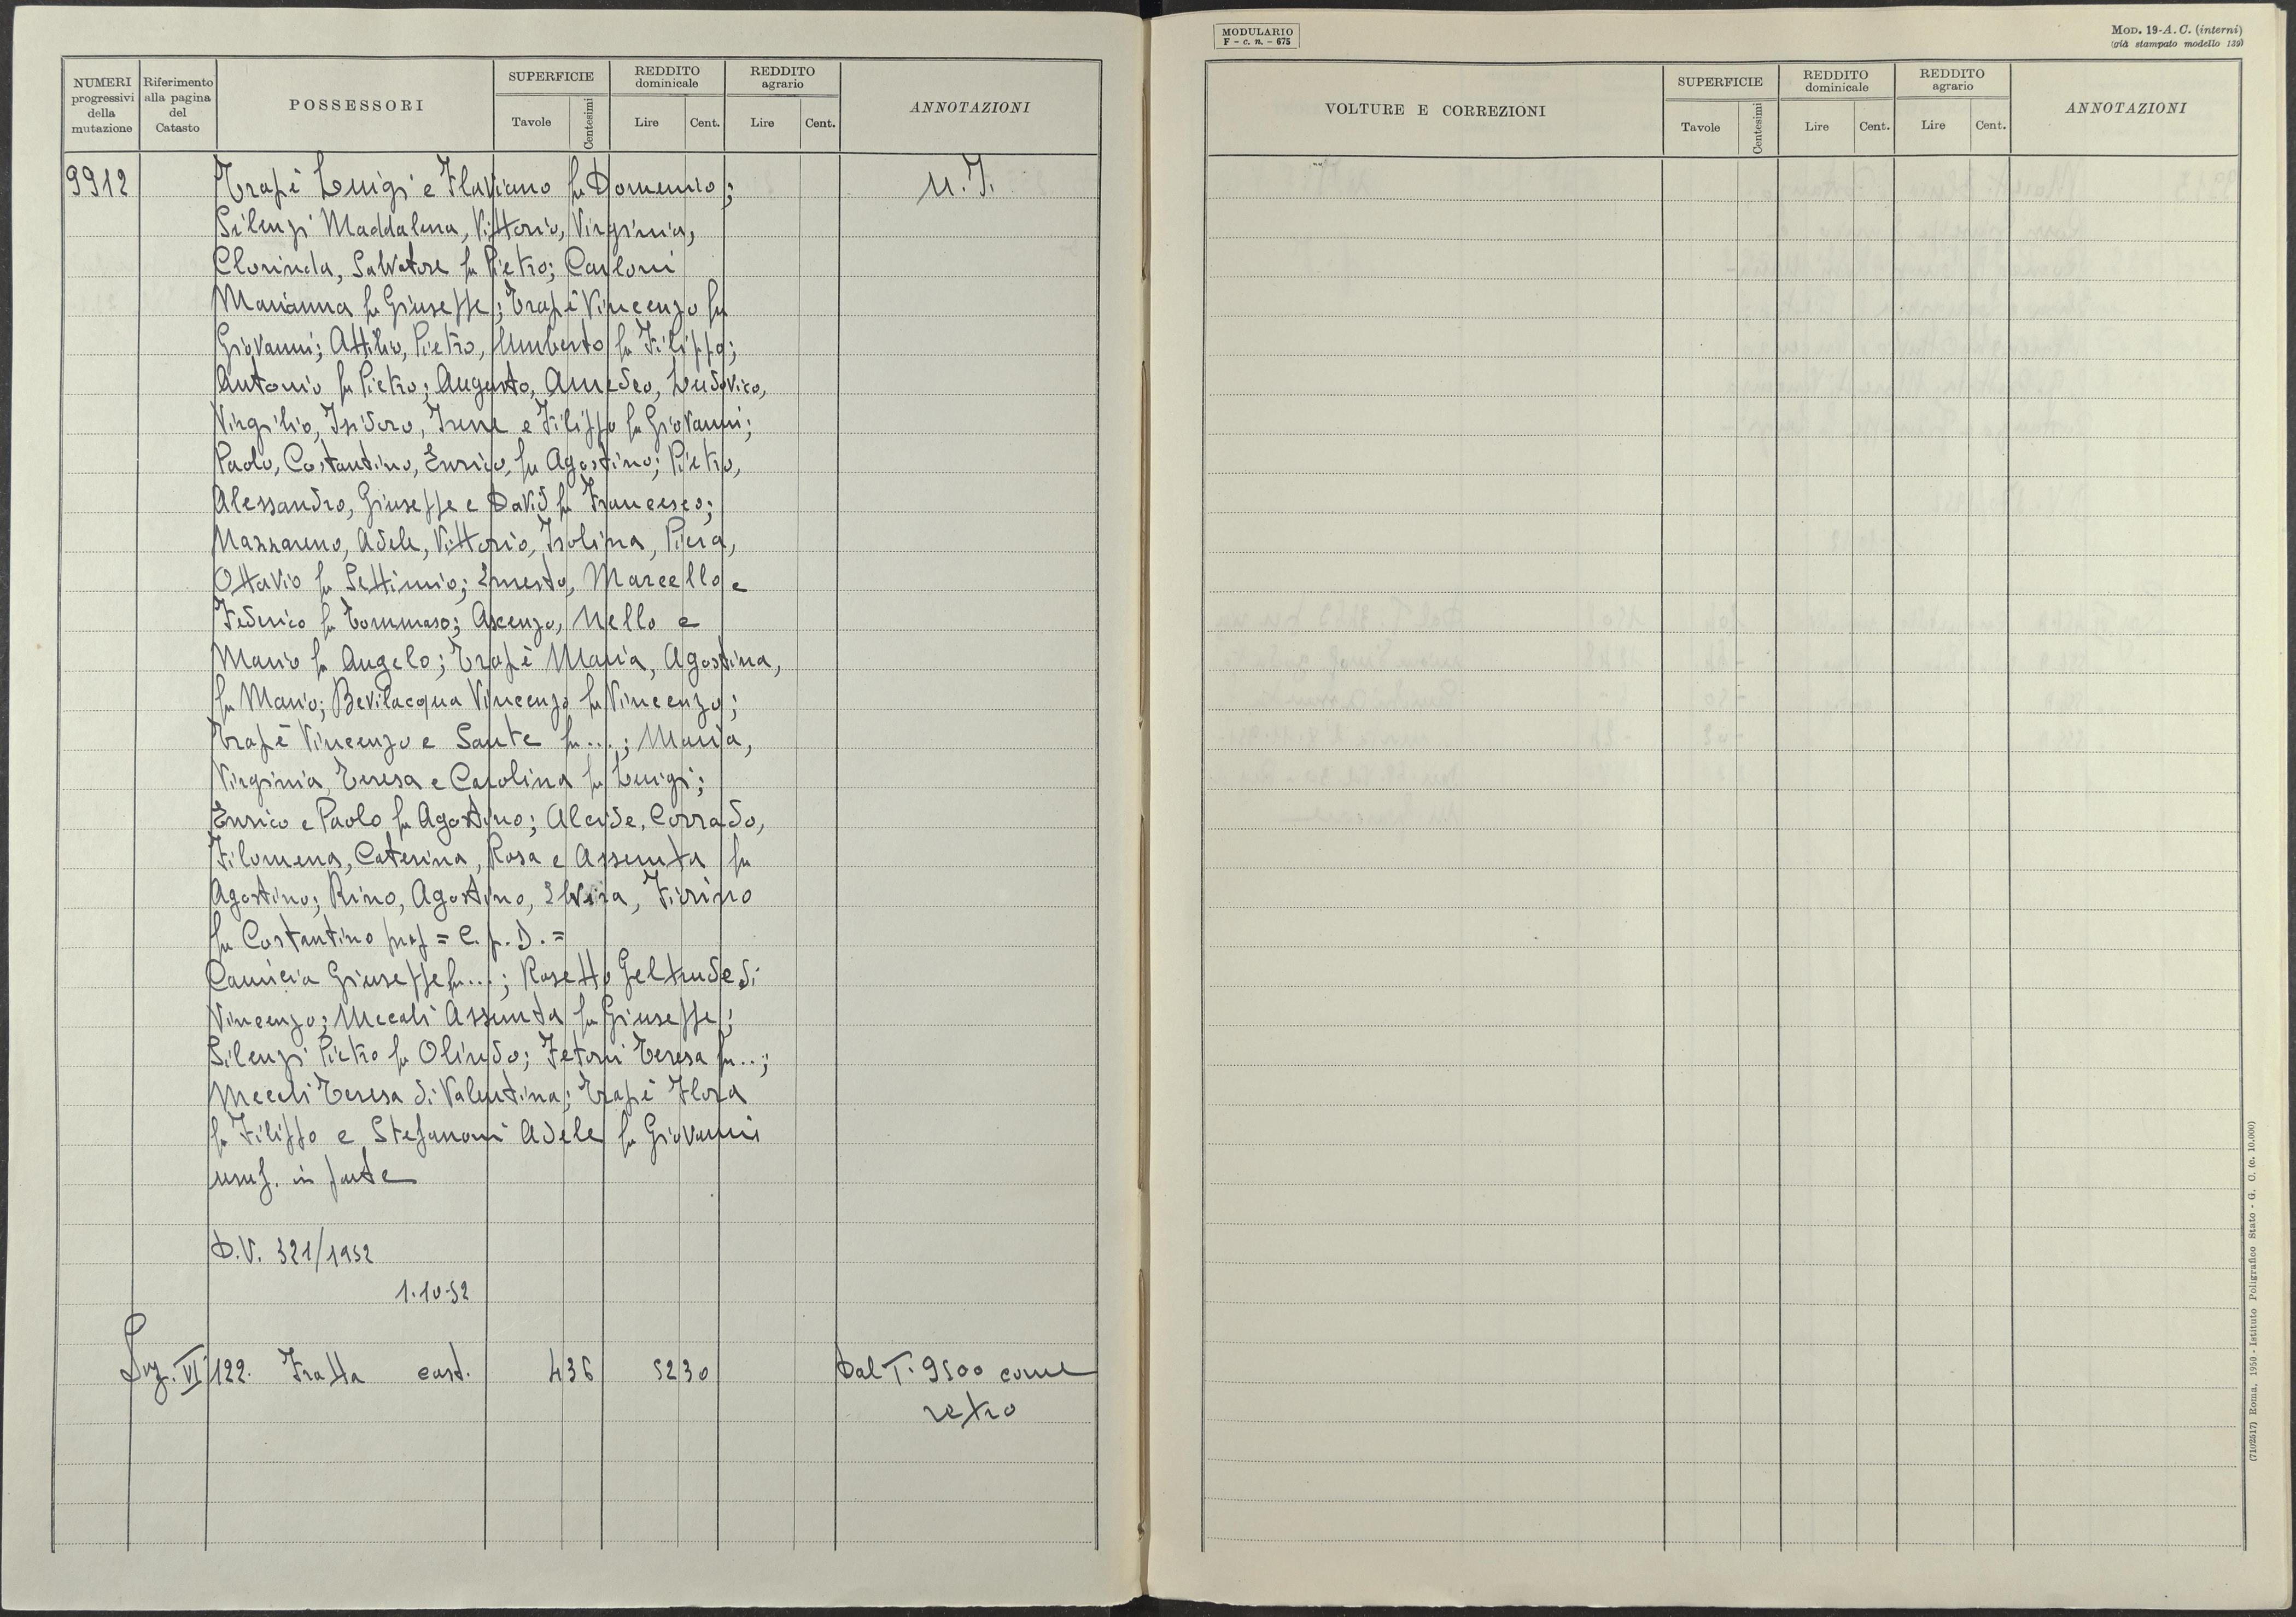 NUMERI progressivi della mutazione
Riferimento alla pagina del Catasto
POSSESSORI
SUPERFICIE
Tavole
Centesimi
REDDITO dominicale
Lire
Cent.
REDDITO agrario
Lire
Cent.
ANNOTAZIONI
9912 Trapè Luigi e Flaviano fu Domenico; M.I.
Silenzi Maddalena, Vittorio, Virginia,
Clorinda, Salvatore fu Pietro; Carloni
Marianna fu Giuseppe; Trapè Vincenzo fu
Giovanni; Attilio, Pietro, Umberto fu Filippo;
Antonio fu Pietro; Augusto, Amedeo, Ludovico,
Virgilio, Isidoro, Irene e Filippo fu Giovanni;
Paolo, Costantino, Enrico, fu Agostino; Pietro,
Alessandro, Giuseppe e David fu Francesco;
Nazzareno, Adele, Vittorio, Isolina, Piera,
Ottavio fu Settimio; Ernesto, Marcello e
Federico fu Tommaso; Ascenzo, Nello e
Mario fu Angelo; Trapè Maria, Agostina,
fu Mario; Bevilacqua Vincenzo fu Vincenzo;
Trapè Vincenzo e Sante fu ...; Maria,
Virginia, Teresa e Carolina fu Luigi;
Enrico e Paolo fu Agostino; Alcide, Corrado,
Filomena, Caterina, Rosa e Assunta fu
Agostino; Rino, Agostino, Elvira, Fiorino
fu Costantino prop = C. p. D. =
Camicia Giuseppe fu ...; Rosetto Geltrude di
Vincenzo; Mecali Assunta fu Giuseppe;
Silenzi Pietro fu Olindo; Fetoni Teresa fu ...;
Mecali Teresa di Valentina; Trapè Flora
fu Filippo e Stefanoni Adele fu Giovanni
usuf. in parte
D.V. 321/1952
1.10.52
Sez. VI 122. Fratta cast. 4 36 52 30 Dal T. 9500 come
retro
MODULARIO
F - c. n. - 675
MOD. 19-A. C. (interni)
(già stampato modello 139)
VOLTURE E CORREZIONI
SUPERFICIE
Tavole
Centesimi
REDDITO dominicale
Lire
Cent.
REDDITO agrario
Lire
Cent.
ANNOTAZIONI
(7102517) Roma, 1950 - Istituto Poligrafico Stato - G. C. (c. 10.000)